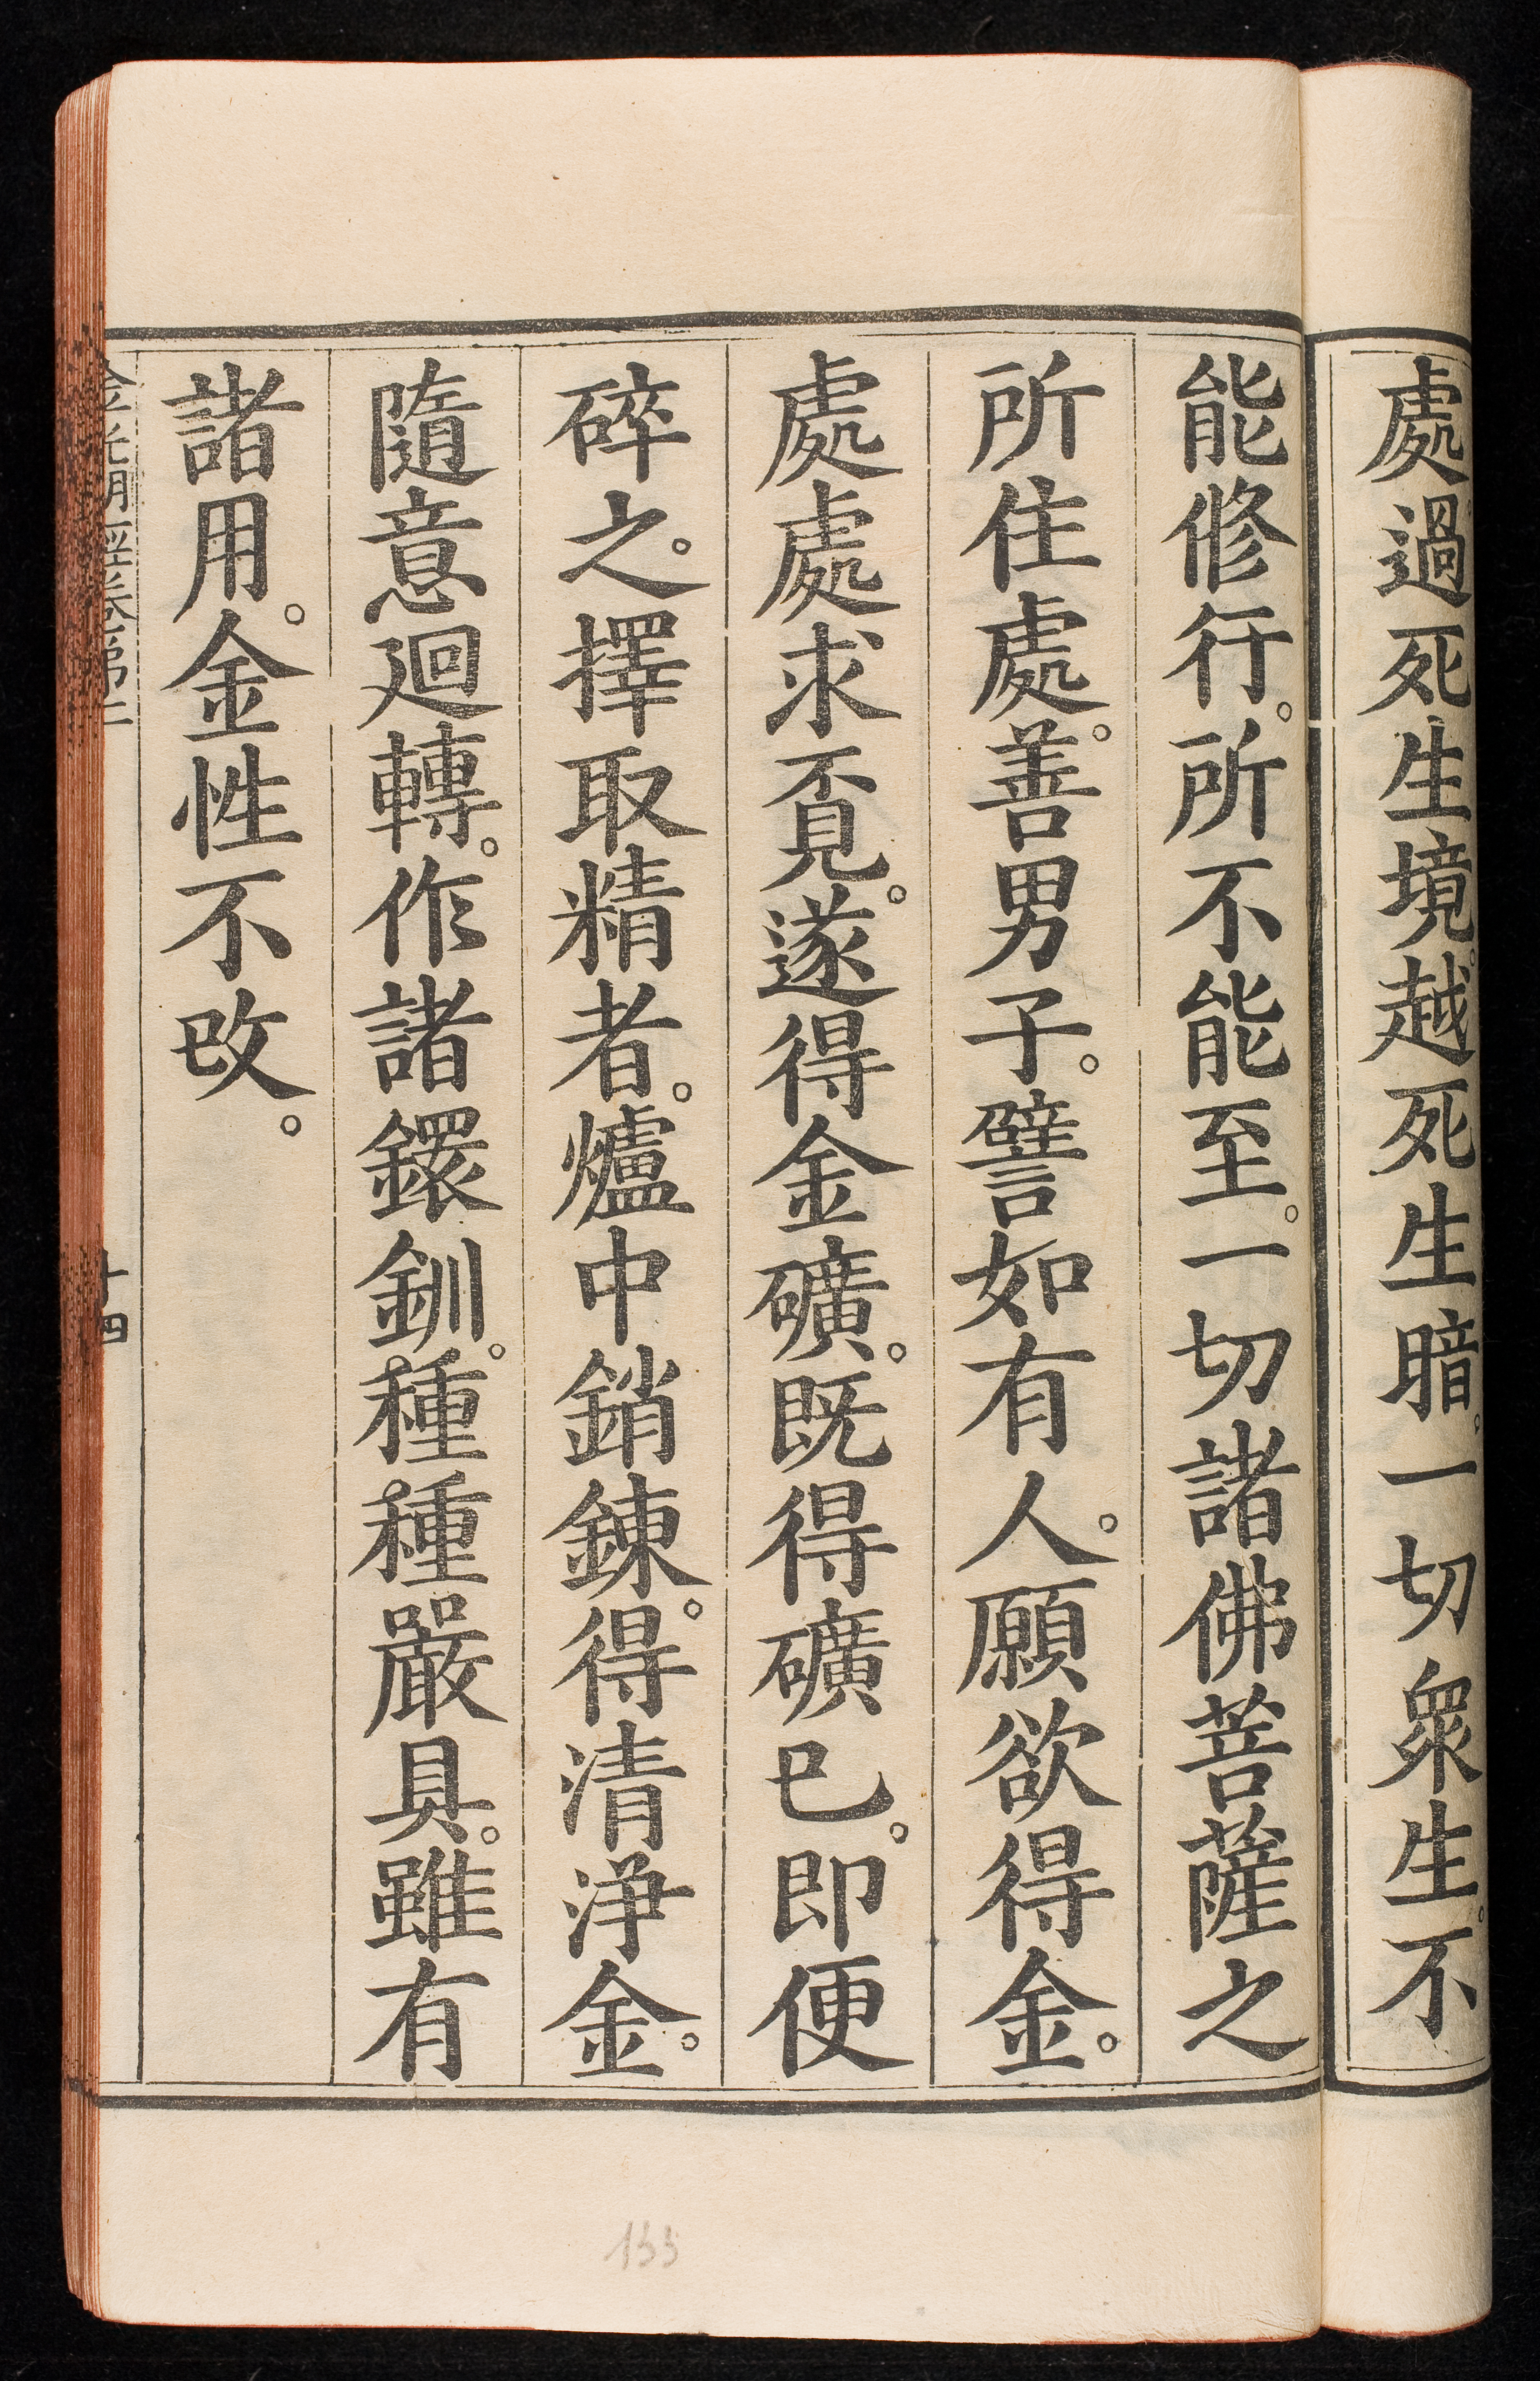 處過死生境。越死生暗。一切眾生。不
能修行。所不能至。一切諸佛菩薩之
所住處。善男子。譬如有人。願欲得金。
處處求覔。遂得金礦。既得礦已。即便
碎之。擇取精者。爐中銷鍊。得清淨金。
隨意迴轉。作諸鐶釧。種種嚴具。雖有
諸用。金性不改。
金光明經卷第二
十四
155